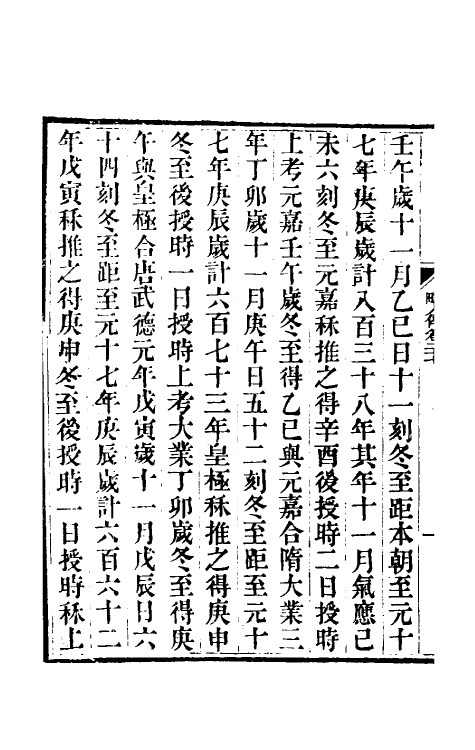 壬午歲十一月乙巳日十一刻冬至距本朝至元十
七年庚辰歲計八百三十八年其年十一月氣應己
未六刻冬至元嘉秝推之得辛酉後授時二日授時
上考元嘉壬午歲冬至得乙巳與元嘉合隋大業三
年丁卯歲十一月庚午日五十二刻冬至距至元十
七年庚辰歲計六百七十三年皇極秝推之得庚申
冬至後授時一日授時上考大業丁卯歲冬至得庚
午與皇極合唐武德元年戊寅歲十一月戊辰日六
十四刻冬至距至元十七年庚辰歲計六百六十二
年戊寅秝推之得庚申冬至後授時一日授時秝上